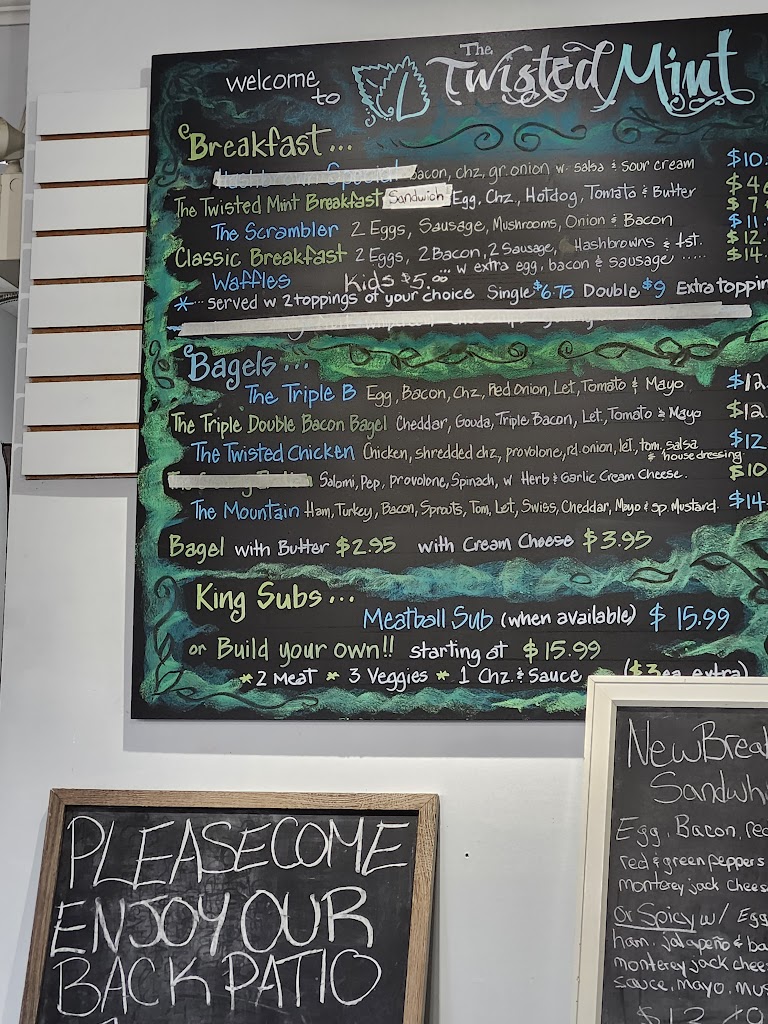 welcome to The Twisted Mint
Breakfast...
bacon, chz, gr. onion w salsa & sour cream $10.
The Twisted Mint Breakfast Sandwich Egg, Chz, Hotdog, Tomato & Butter
The Scrambler 2 Eggs, Sausage, Mushrooms, Onion & Bacon $11.
Classic Breakfast 2 Eggs, 2 Bacon, 2 Sausage, Hashbrowns & tst. $12.
... w extra egg, bacon & sausage ..... $14.
Waffles Kids $5.00
*... served w 2 toppings of your choice Single $6.75 Double $9 Extra toppin
Bagels...
The Triple B Egg, Bacon, Chz, Red Onion, Let, Tomato & Mayo $12.
The Triple Double Bacon Bagel Cheddar, Gouda, Triple Bacon, Let, Tomato & Mayo $12.
The Twisted Chicken Chicken, shredded chz, provolone, rd. onion, let, tom, salsa & house dressing $12
Salomi, Pep, Provolone, Spinach, w Herb & Garlic Cream Cheese. $10
The Mountain Ham, Turkey, Bacon, Sprouts, Tom, Let, Swiss, Cheddar, Mayo & sp Mustard. $14.
Bagel with Butter $2.95 with Cream Cheese $3.95
King Subs...
Meatball Sub (when available) $15.99
or Build your own!! starting at $15.99
* 2 Meat * 3 Veggies * 1 Chz. & Sauce ($3 ea. extra)
PLEASE COME
ENJOY OUR
BACK PATIO
New Brea
Sandwi
Egg, Bacon, red
red & green peppers
monterey jack chees
Or Spicy w/ Egg
ham, jalapeño & ba
monterey jack chee
sauce, mayo, mus